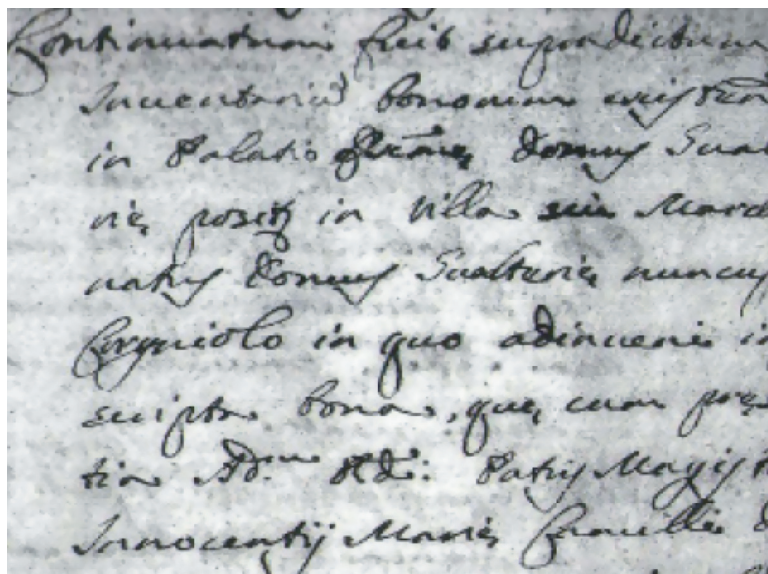 Continuatum fuit supradictum
Inventariũ bonorum existen
in Palatio Domus Sual
rie, posit in Villa sive March
natus Domus Gualterie, nuncup
Corgniolo in quo adinveni in
scripta bona, que, cum pre
tia Ad.m Rd: Patris Magist
Innocentij Marie, Camilli d